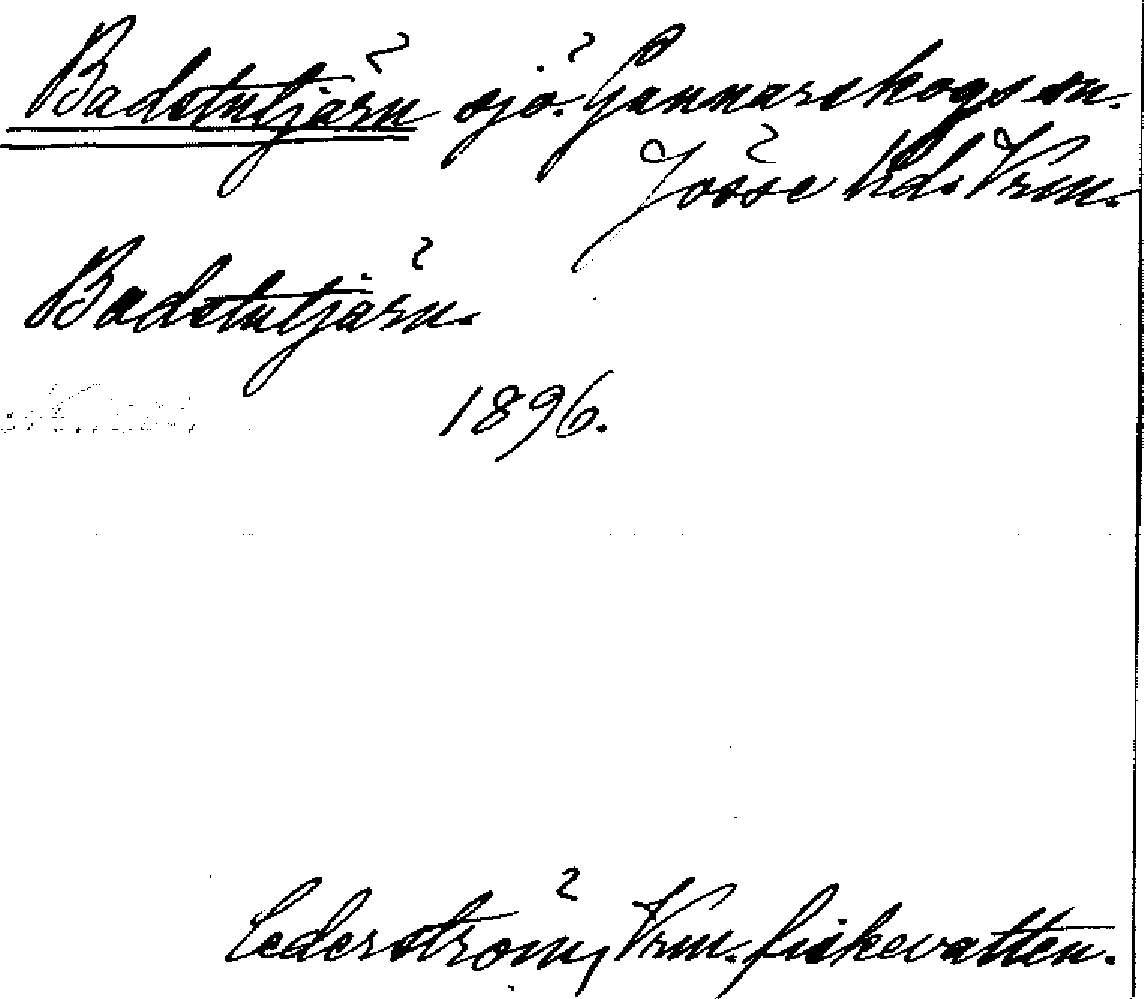 Badstutjärn sjö. Gunnarskogs sn.
Jösse hd. Vrm.
Badstutjärn.
1896.
Cederström, Vrm. fiskevatten.